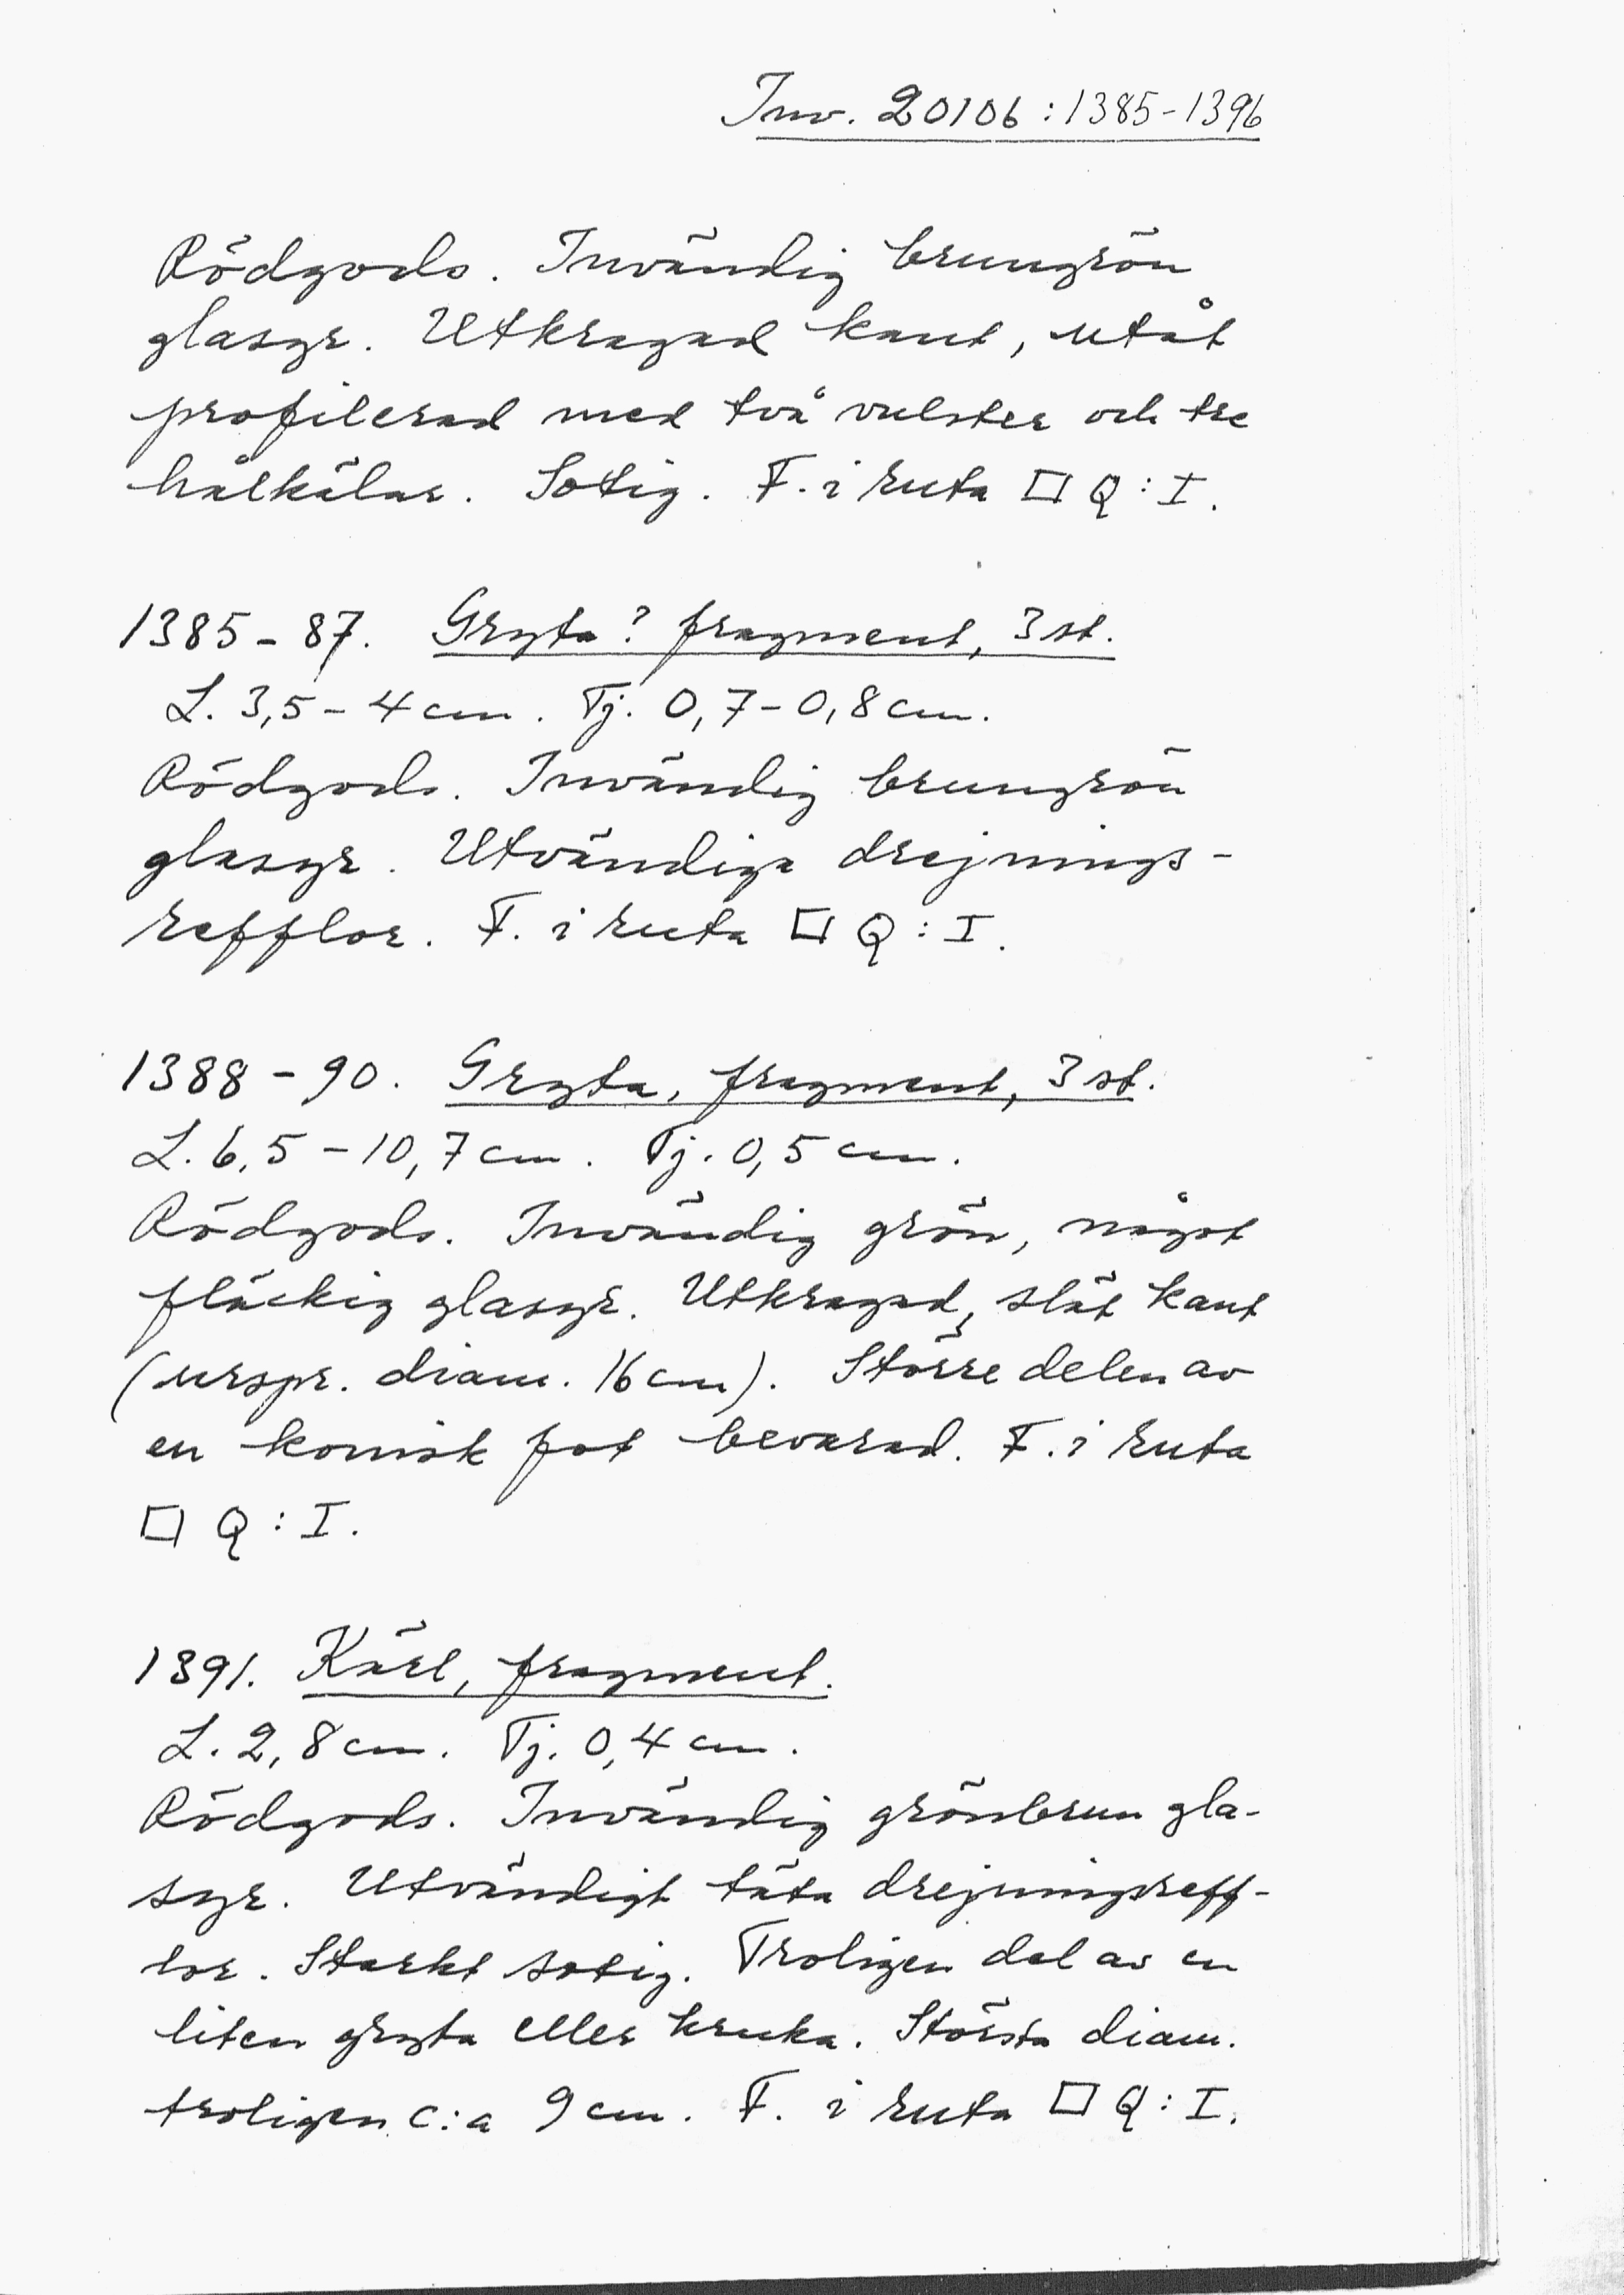 Inv. 20106:1385-1396
Rödgods. Invändig brungrön
glasyr. Utkragad kant, utåt
profilerad med två vulster och tre
hålkälar. Sotig. F. i ruta □ Q:I.
1385-87. Gryta? fragment, 3 st.
L. 3,5-4 cm. Tj. 0,7-0,8 cm.
Rödgods. Invändig brungrön
glasyr. Utvändiga drejnings-
refflor. F. i ruta □ Q:I.
1388-90. Gryta, fragment, 3 st.
L. 6,5-10,7 cm. Tj. 0,5 cm.
Rödgods. Invändig grön, något
fläckig glasyr. Utkragad, slät kant
(urspr. diam. 16 cm). Större delen av
en konisk fot bevarad. F. i ruta
□ Q:I.
1391. Kärl, fragment.
L. 2,8 cm. Tj. 0,4 cm.
Rödgods. Invändig grönbrun gla-
syr. Utvändigt täta drejningsreff-
lor. Starkt sotig. Troligen del av en
liten gryta eller kruka. Största diam.
troligen c:a 9 cm. F. i ruta □ Q:I.